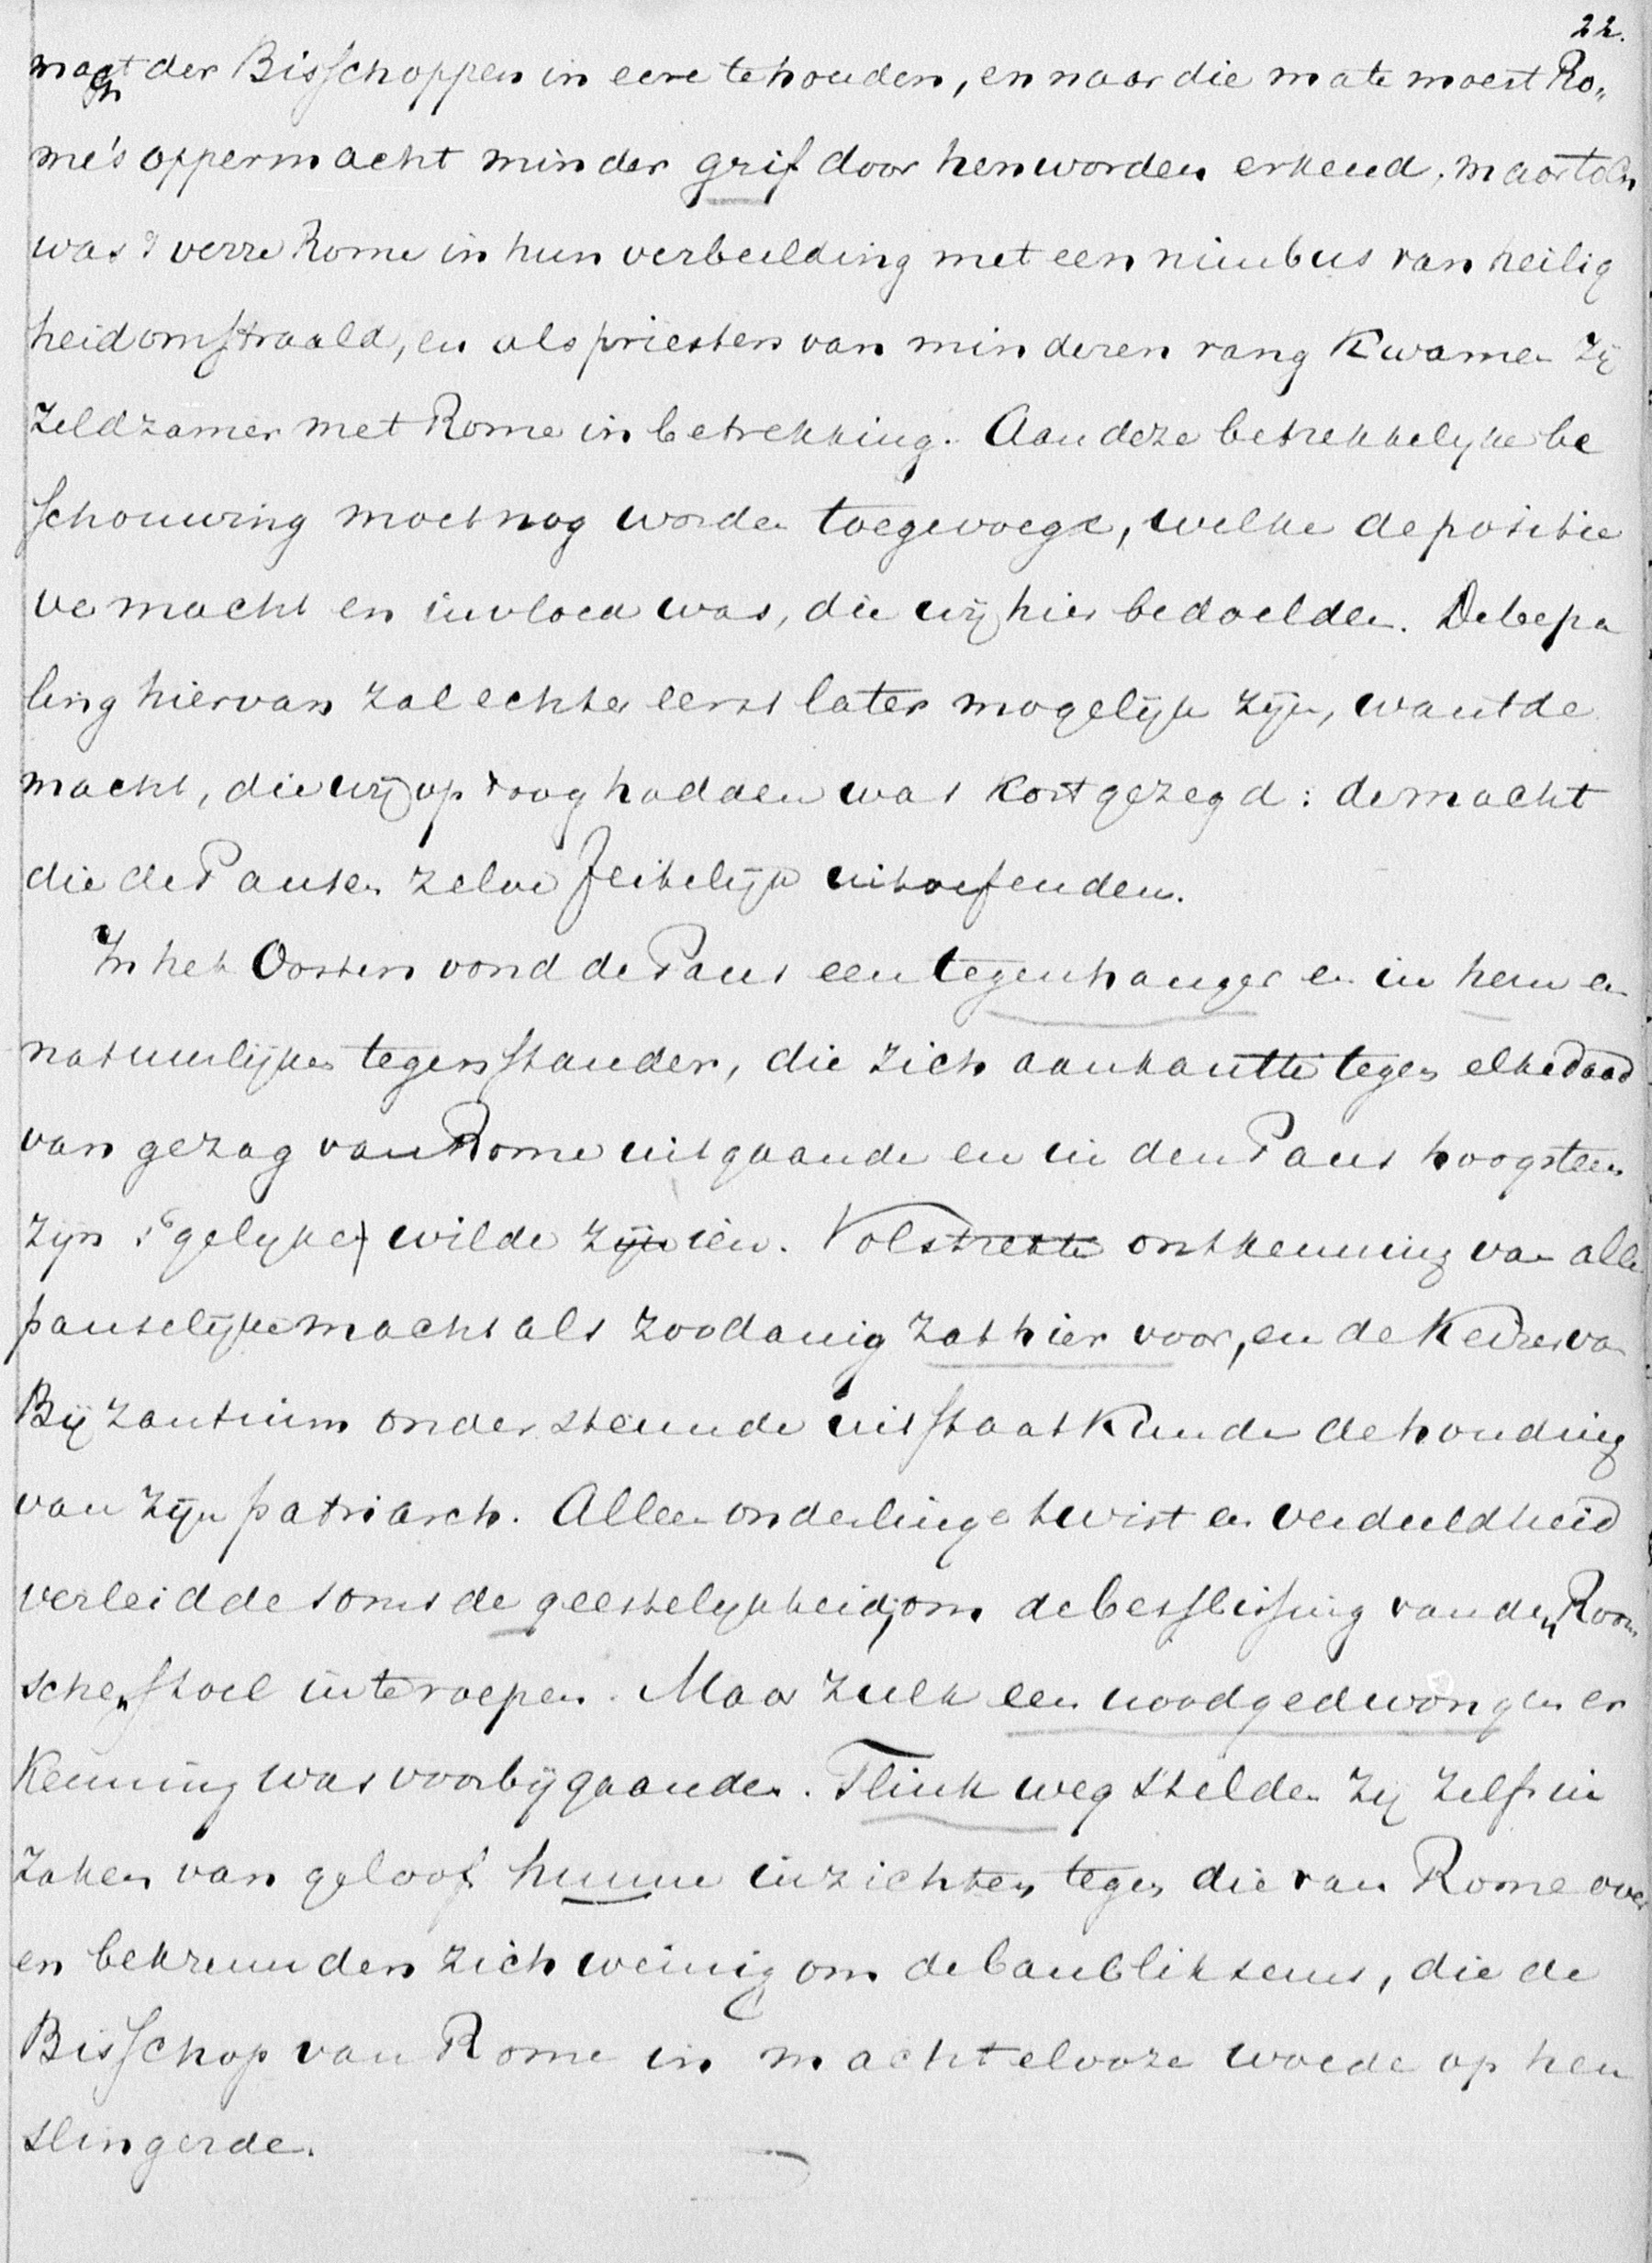 22.
macht der Bisschoppen in eere te houden, en naar die mate moest Ro„
me's oppermacht minder grif door hen worden erkend, maar toch
was 't verre Rome in hun verbeelding met een nimbus van heilig
heid omstraald, en als priesters van minderen rang kwamen zij
zeldzamer met Rome in betrekking. Aan deze betrekkelijke be
schouwing moet nog worden toegevoegd, welke de positie
ve macht en invloed was, die wij hier bedoelden. De bepa
ling hiervan zal echter eerst later mogelijk zijn, want de
macht, die wij op 't oog hadden was kort gezegd: de macht
die de Pausen zelve feitelijk uitoefenden.
In het Oosten vond de Paus een tegenhanger en in hem en
natuurlijken tegenstander, die zich aankantte tegen elke daad
van gezag van Rome uitgaande en in den Paus hoogstens
zijn 's gelijke wilde zien. Volstrekte ontkenning van alle
pauselijke macht als zoodanig zat hier voor, en de Keizer van
Bijzantium ondersteunde uit staatkunde de houding
van zijn patriarch. Alleen onderlinge twist en verdeeldheid
verleidde soms de geestelijkheid, om de beslissing van den Room
schen stoel in te roepen. Maar zulk een noodgedwongen er
kenning was voorbijgaande. Flink weg stelden zij zelfs in
zaken van geloof hunne inzichten tegen die van Rome over
en bekreunden zich weinig om de banbliksems, die de
Bisschop van Rome in machtelooze woede op hen
slingerde.